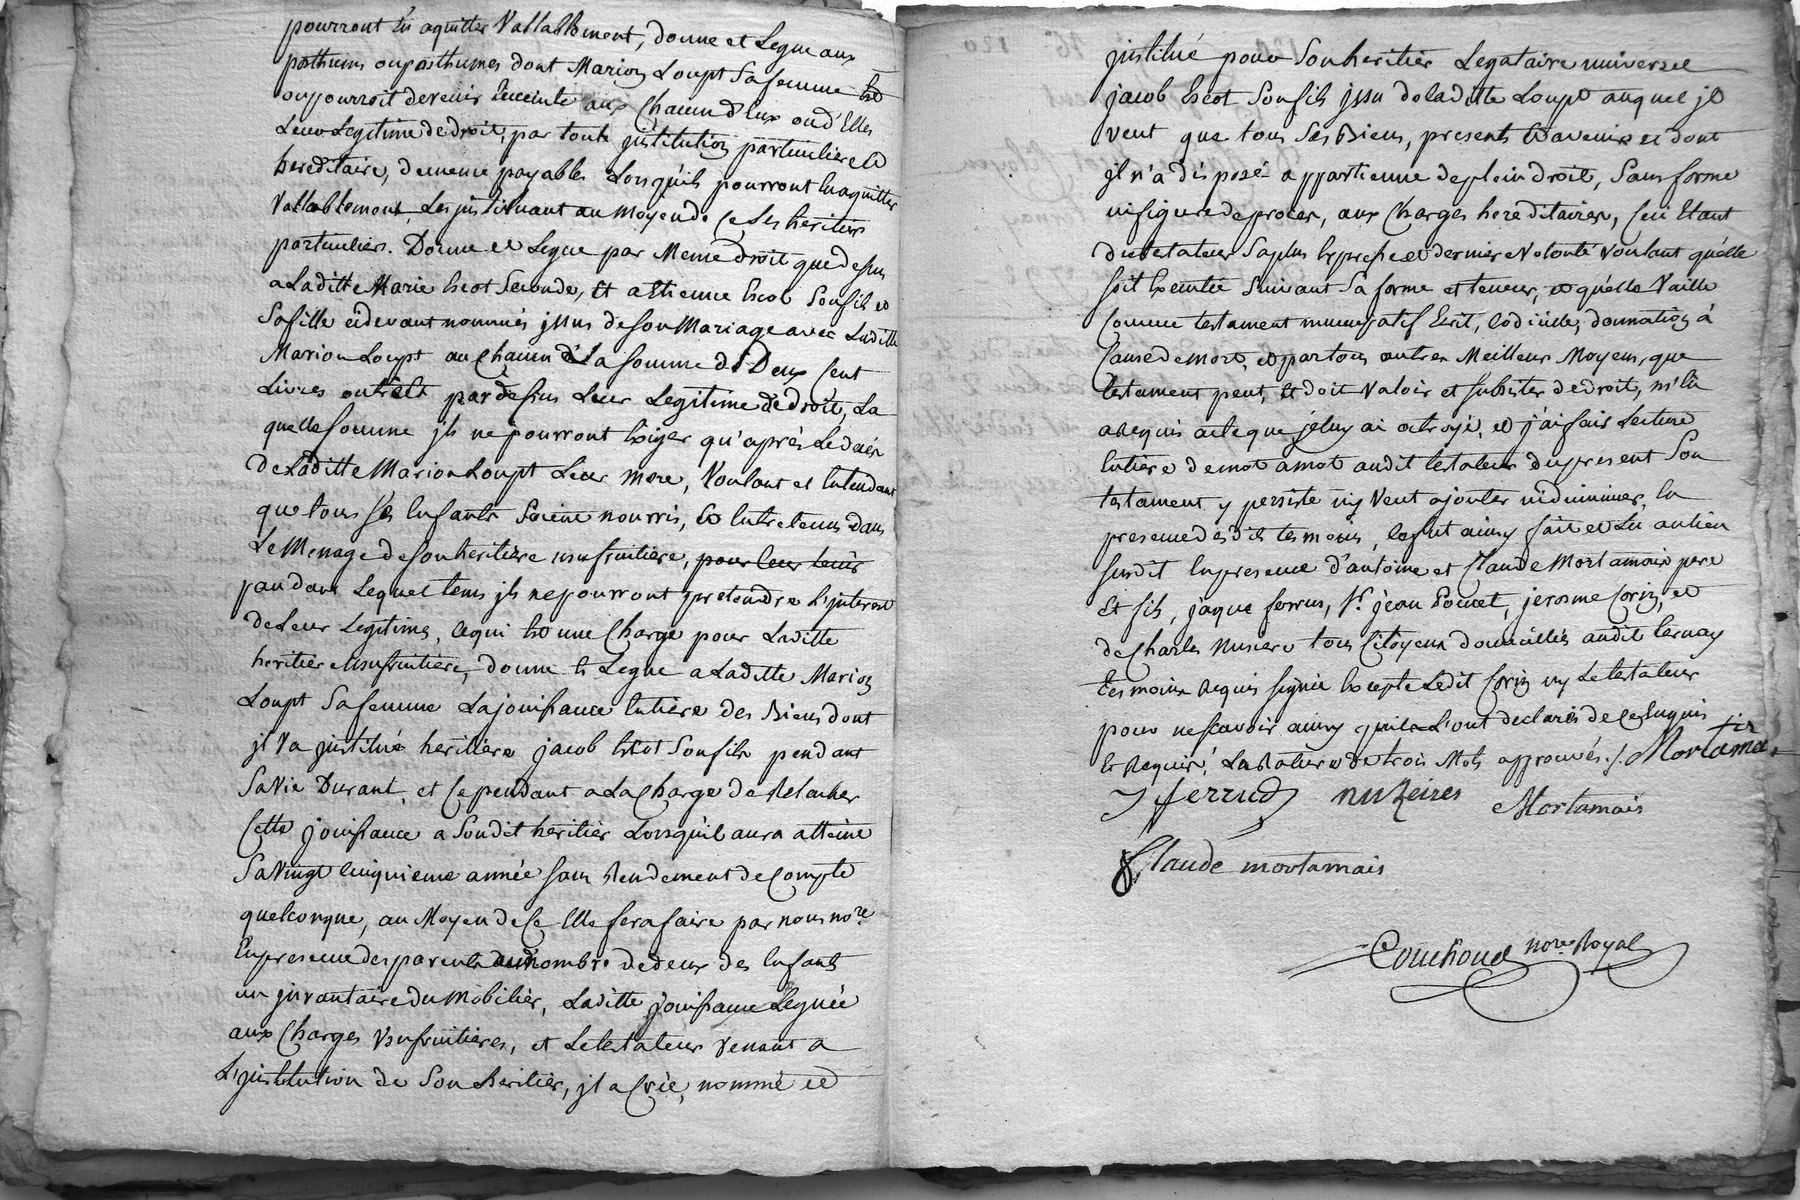 pourront lês aquitter Vallablement, donne et Legue aux
posthums ou posthumes dont Marion Loupt Sa femme Est
ou pourroit devenir Enceinte aux Chacun d'Eux ou d'Elles
Leur Legitime de droit, par toute jnstitution particuliere Et
hereditaire, de meme payables Lorsquils pourront En aquitter
Vallablement Les jnstituant au Moyen de Ce Ses heritiers
particuliers. Donne et Legue par Meme droit que desus
a Laditte Marie Escot Seconde, Et a Etienne Escot Son fils et
Sa fille cidevant nommés jssus de Son Mariage avec Laditte
Marion Loupt au Chacun d'La Somme de Deux Cent
Livres outre Et par desus Leur Legitime de droit, La
quelle Somme jls ne pourront Exiger qu'aprés Le decés
de Laditte Marion Loupt Leur mere, Voulant et Entendant
que tous Ses Enfants Soient nourris, Et Entretenus dans
Le Menage de Son heritiere usufruitiere, pour leur tenir
pandant Lequel tems jls ne pourront pretendre L'interest
de Leur Legitime, Cequi Est une Charge pour Laditte
heritiere usufruitiere, donne Et Legue a Laditte Marion
Loupt Sa femme La jouissance Entiere des Biens dont
jl Va jnstitué heritiere jacob Escot Son fils pendant
Sa Vie Durant, et Cependant a La Charge de Relacher
Cette jouissance a Sondit heritier Lorsqu'il aura atteint
Sa Vingt Cinquieme année Sans Rendement de Compte
quelconque, au Moyen de Ce Elle fera faire par nous nore
En presence des parents au nombre de deux des Enfants
un jnvantaire du Mobilier, Laditte jouissance Leguée
aux Charges Usufruitieres, et Le testateur Venant a
L'jnstitution de Son heritier, jl a Crée, nommé et
jnstitué pour Son heritier Legataire universel
jacob Escot Son fils jssu de laditte Loupt auquel jl
veut que tous Ses Biens, presents Et avenir et dont
jl n'a disposé appartienne de plein droit, Sans forme
ni figure de proces, aux Charges hereditaires, Ceci Etant
du testateur Sa plus Expresse et derniere Volonté Voulant qu'elle
Soit Executée Suivant Sa forme et teneur, et qu'elle Vaille
Comme testament nuncupatif Ecrit, Codicille, donnation à
Cause de Mort, et par tous autres Meilleurs Moyens, que
testament peut, Et doit Valoir et Subsister de droit, m'En
a Requis acte que je luy ai octroyé, et j'ai fait Lecture
Entiere de mot a mot audit testateur du present Son
testament y persiste ny Veut ajouter ni diminuer, En
presence desdits temoins, Ce fut ainsy fait et Lu au lieu
Susdit En presence d'antoine et Claude Mortamais pere
Et fils, jaque ferrus, Sr. jean Poncet, jerosme Corin, et
de Charles nuziere tous Citoyens domiciliés audit ternay
temoins Requis Signés Excepté Ledit Corin ny Le testateur
pour ne Scavoir ainsy quils L'ont declarés de Ce Enquis
Et Requis, La Rature de trois Mots approuvés ./. Mortamais
J ferrud nuzeires Mortamais
Claude mortamais
Couchoud nore Royal